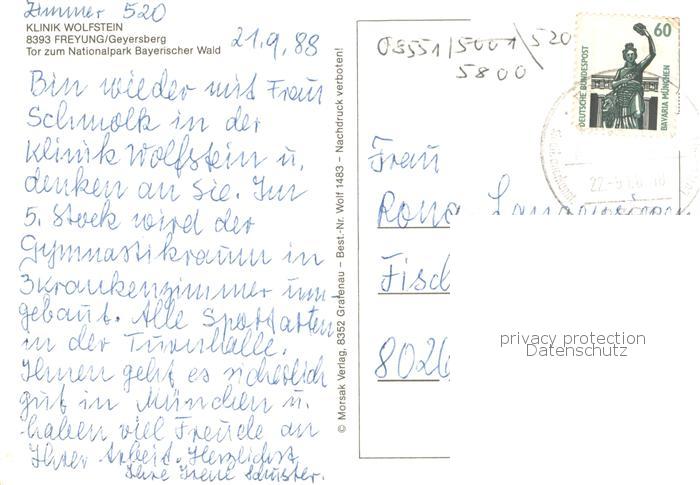 Zimmer 520
KLINIK WOLFSTEIN
8393 FREYUNG/Geyersberg
Tor zum Nationalpark Bayerischer Wald
21.9.88
Bin wieder mit Frau
Schmolk in der
Klinik Wolfstein u.
denken an Sie. Im
5. Stock wird der
Gymnastikraum in
3 Krankenzimmer um-
gebaut. Alle Sportarten
in der Turnhalle.
Ihnen geht es sicherlich
gut in München u.
haben viel Freude an
Ihrer Arbeit. Herzlichst
Ihre Irene Schuster.
© Morsak Verlag, 8352 Grafenau – Best.-Nr. Wolf 1483 – Nachdruck verboten!
08551/5001/520
5800
DEUTSCHE BUNDESPOST
60
BAVARIA MÜNCHEN
Frau
Fisc
8026
privacy protection
Datenschutz